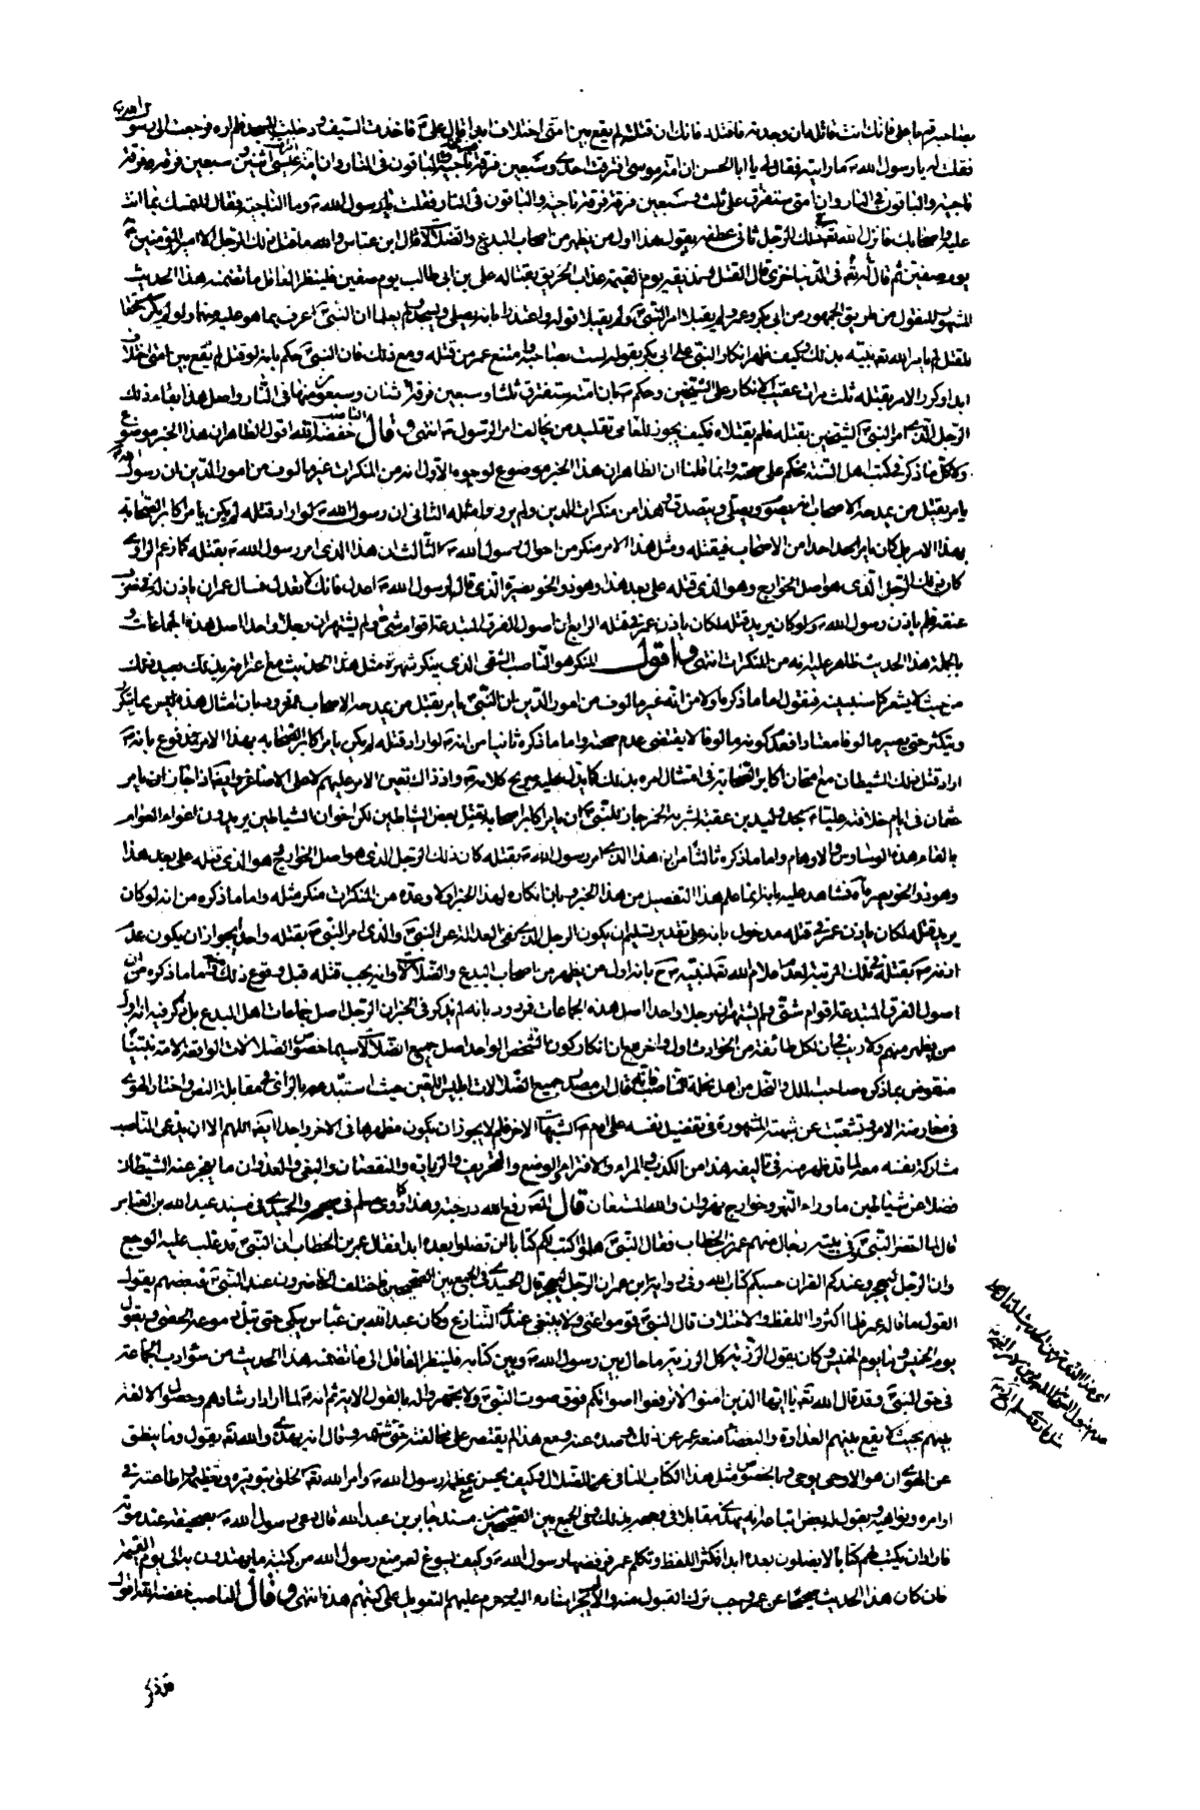 بصاحبه قم يا علي فانك انت قاتله ان وجدته فاقتله فانك ان قتلته لم يقع بين امتي اختلاف ابدا قال علي فاخذت السيف ودخلت المسجد فلم اره فرجعت الى رسول
فقلت له يا رسول الله ما رايته فقال لي يا ابا الحسن ان امة موسى افترقت احدى وسبعين فرقة فرقة ناجية والباقون في النار وان امة عيسى اثنين وسبعين فرقة فرقة
ناجية والباقون في النار وان امتي ستفترق على ثلث وسبعين فرقة فرقة ناجية والباقون في النار فقلت يا رسول الله وما الناجية فقال المتمسك بما انت
عليه واصحابك فانزل الله تعالى في ذلك الرجل ثاني عطفه يقول هذا اول من يظهر من اصحاب البدع والضلالات قال ابن عباس والله ما قتل ذلك الرجل الا امير المؤمنين
يوم صفين ثم قال له في الدنيا خزي قال القتل ونذيقه يوم القيمة عذاب الحريق بقتاله علي بن ابي طالب يوم صفين فلينظر العاقل ما تضمنه هذا الحديث
المشهور المنقول من طريق الجمهور من ابي بكر وعمر ولم يقبلا امر النبي ولم يقبلا قوله واعتذرا بانه يصلي ويسجد ولم يعلما ان النبي اعرف بما هو عليه منهما ولو لم يكن مستحقا
للقتل لم يامر الله نبيه بذلك وكيف ظهر انكار النبي على ابي بكر بقوله لست بصاحبه وامتنع عمر من قتله ومع ذلك فان النبي حكم بانه لو قتل لم يقع بين امتي اختلاف
ابدا وكرر الامر بقتله ثلث مرات عقيب الانكار على الشيخين وحكم بان امته ستفترق ثلثا وسبعين فرقة اثنان وسبعون منها في النار واصل هذا بقاء ذلك
الرجل الذي امر النبي الشيخين بقتله فلم يقتلاه فكيف يجوز للعامي تقليد من يخالف امر الرسول انتهى وقال الناصب خفضه الله اقول الظاهر ان هذا الخبر موضوع
وكل ما ذكر فكتب اهل السنة يحكم على صحته وانما قلنا ان الظاهر ان هذا الخبر موضوع لوجوه الاول انه من المنكرات غير مالوف من امور الدين ان رسول
يامر بقتل من يمدحه الاصحاب انه يصوم ويصلي ويتصدق وهذا من منكرات الدين ولم يرو امثله الثاني ان رسول الله لو اراد قتله لم يكن يامر اكابر الصحابة
بهذا الامر بل كان يامر احدا من الاصحاب فيقتله ومثل هذا الامر منكر من احوال رسول الله الثالث ان هذا الذي امر رسول الله بقتله كما زعم الراوي
كان ذلك الرجل الذي هو اصل الخوارج وهو الذي قتله علي بعد هذا وهو ذو الخويصرة الذي قال لرسول الله اعدل فانك لا تعدل فسال عمر ان ياذن له فيضرب
عنقه فلم ياذن رسول الله ولو كان يريد قتله لكان ياذن عمر في قتله الرابع ان اصول الفرق المبتدعة اقوام شتى ولم يشتهر ان رجلا واحدا اصل هذه الجماعات و
بالجملة هذا الحديث ظاهر عليه انه من المنكرات انتهى واقول المنكر هو الناصب الشقي الذي ينكر شهرة مثل هذا الحديث مع اعترافه بذلك بعيد ذلك
من حيث لا يشعر كما سنبينه فنقول اما ما ذكره اولا من انه غير مالوف من امور الدين ان النبي يامر بقتل من يمدحه الاصحاب فمردود بان امثال هذه ليس مما يتكرر
ويتكثر حتى يصير مالوفا معتادا فعدم كونه مالوفا لا يقتضي عدم صحته واما ما ذكره ثانيا من انه لو اراد قتله لم يكن يامر اكابر الصحابة بهذا الامر فمدفوع بانه
اراد قتل ذلك الشيطان مع امتحان اكابر الصحابة في امتثال امره بذلك كما يدل عليه صريح كلامه واذ ذاك تعين الامر عليهم لا على الاصاغر وايضا اذا جاز ان يامر
عثمان في ايام خلافته عليا بحد وليد بن عقبة لشربه الخمر جاز للنبي ان يامر اكابر اصحابه بقتل بعض الشياطين لكن اخوان الشياطين يريدون اغواء العوام
بالقاء هذه الوساوس والاوهام واما ما ذكره ثالثا من ان هذا الذي امر رسول الله بقتله كان ذلك الرجل الذي هو اصل الخوارج وهو الذي قتله علي بعد هذا
وهو ذو الخويصرة فشاهد عليه بانه انما علم هذا التفصيل من هذا الخبر وبان انكاره لهذا الخبر اولا وعده من المنكرات منكر مثله واما ما ذكره من انه لو كان
يريد قتله لكان ياذن عمر في قتله مدخول بانه على تقدير تسليم ان يكون الرجل الذي نفى العدالة عن النبي والذي امر النبي بقتله واحدا يجوز ان يكون عدم
اذنه بقتله في تلك المرتبة لعدم اعلام الله تعالى نبيه ح بانه اول من يظهر من اصحاب البدع والضلالات وانه يجب قتله قبل وقوع ذلك منه واما ما ذكره من ان
اصول الفرق المبتدعة اقوام شتى ولم يشتهر ان رجلا واحدا اصل هذه الجماعات فمردود بانه لم يذكر في الخبر ان الرجل اصل جماعات اهل البدع بل ذكر فيه انه اول
من يظهر منهم ولا ريب في ان لكل طائفة من الحوادث اول واخر مع ان انكار كون الشخص الواحد اصل جميع الضلالات سيما خصوص الضلالات الواقعة لامة نبينا
منقوض بما ذكره صاحب الملل والنحل من اهل نحلة الناصب فانه قال ان مصدر جميع الضلالات ابليس اللعين حيث استبد بالراي في مقابلة النص واختار الهوى
في معارضة الامر وتشعبت عن شبهته المشهورة في تفضيل نفسه على ادم الشبهات الاخر فلم لا يجوز ان يكون مظهرها في الاخر واحدا ايضا اللهم الا ان يدعي الناصب
مشاركة نفسه معه لما قد ظهر منه في تاليفه هذا من الكذب والمراء والافتراء والوضع والتحريف والزيادة والنقصان والبغي والعدوان ما يعجز عنه الشيطان
فضلا عن شياطين ما وراء النهر وخوارج نهروان والله المستعان قال المص رفع الله درجته وهذا كما روى مسلم في صحيحه والحميدي في مسند عبد الله بن العباس
قال لما احتضر النبي وفي بيته رجال منهم عمر بن الخطاب فقال النبي هلموا اكتب لكم كتابا لن تضلوا بعده ابدا فقال عمر بن الخطاب ان النبي قد غلب عليه الوجع
وان الرجل ليهجر وعندكم القران حسبكم كتاب الله وفي رواية ابن عمر ان الرجل ليهجر قال الحميدي في الجمع بين الصحيحين فاختلف الحاضرون عند النبي فبعضهم يقول
القول ما قاله عمر فلما اكثروا اللغط والاختلاف قال النبي قوموا عني ولا ينبغي عندي التنازع وكان عبد الله بن عباس يبكي حتى تبل دموعه الحصى ويقول
يوم الخميس وما يوم الخميس وكان يقول الرزية كل الرزية ما حال بين رسول الله وبين كتابه فلينظر العاقل الى ما تضمنه هذا الحديث من سوء ادب الجماعة
في حق النبي وقد قال الله تعالى يا ايها الذين امنوا لا ترفعوا اصواتكم فوق صوت النبي ولا تجهروا له بالقول الاية ثم انه لما اراد ارشادهم وحصول الالفة
بينهم بحيث لا يقع بينهم العداوة والبغضاء منعه عمر عن ذلك وصده عنه ومع هذا لم يقتصر على مخالفته حتى شتمه وقال انه يهذي والله تعالى يقول وما ينطق
عن الهوى ان هو الا وحي يوحى وبالخصوص مثل هذا الكتاب النافي عن الضلال وكيف يحسن مع عظمة رسول الله وامر الله تعالى الخلق بتوقيره وتعظيمه واطاعته في
اوامره ونواهيه يقول له بعض اتباعه انه يهذي مقابلا في وجهه بذلك وفي الجمع بين الصحيحين من مسند جابر بن عبد الله قال دعا رسول الله بصحيفة عند موته
فاراد ان يكتب لهم كتابا لا يضلون بعده ابدا فكثر اللغط وتكلم عمر فرفضها رسول الله وكيف يسوغ لعمر منع رسول الله من كتبة ما يهتدون به الى يوم القيمة
فان كان هذا الحديث صحيحا عن عمر وجب ترك القبول منه والا لم يجز اسناده اليه وحرم عليهم التعويل على كتبهم هذه انتهى وقال الناصب خفضه الله اقول
قد ذكر